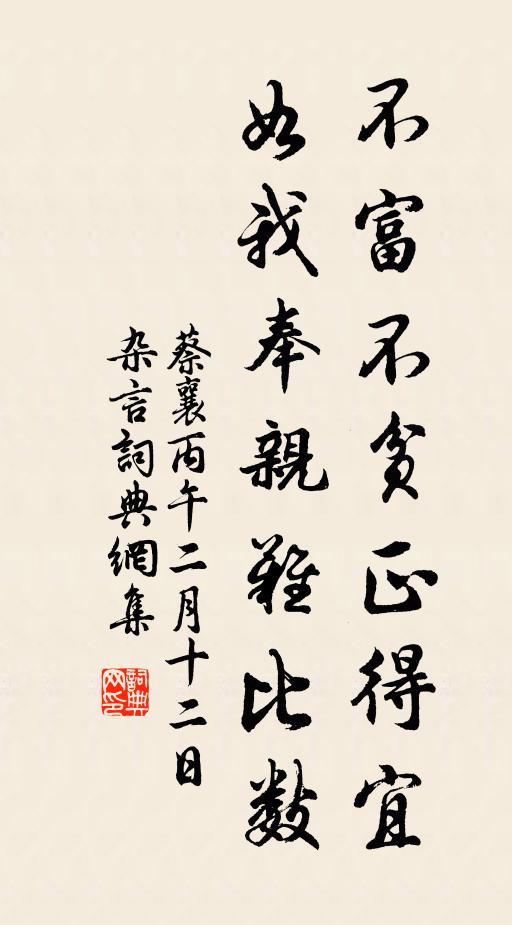 不富不貧正得宜
如我奉親難比數
蔡襄丙午二月十二日
杂言詞典網集
詞典
网印